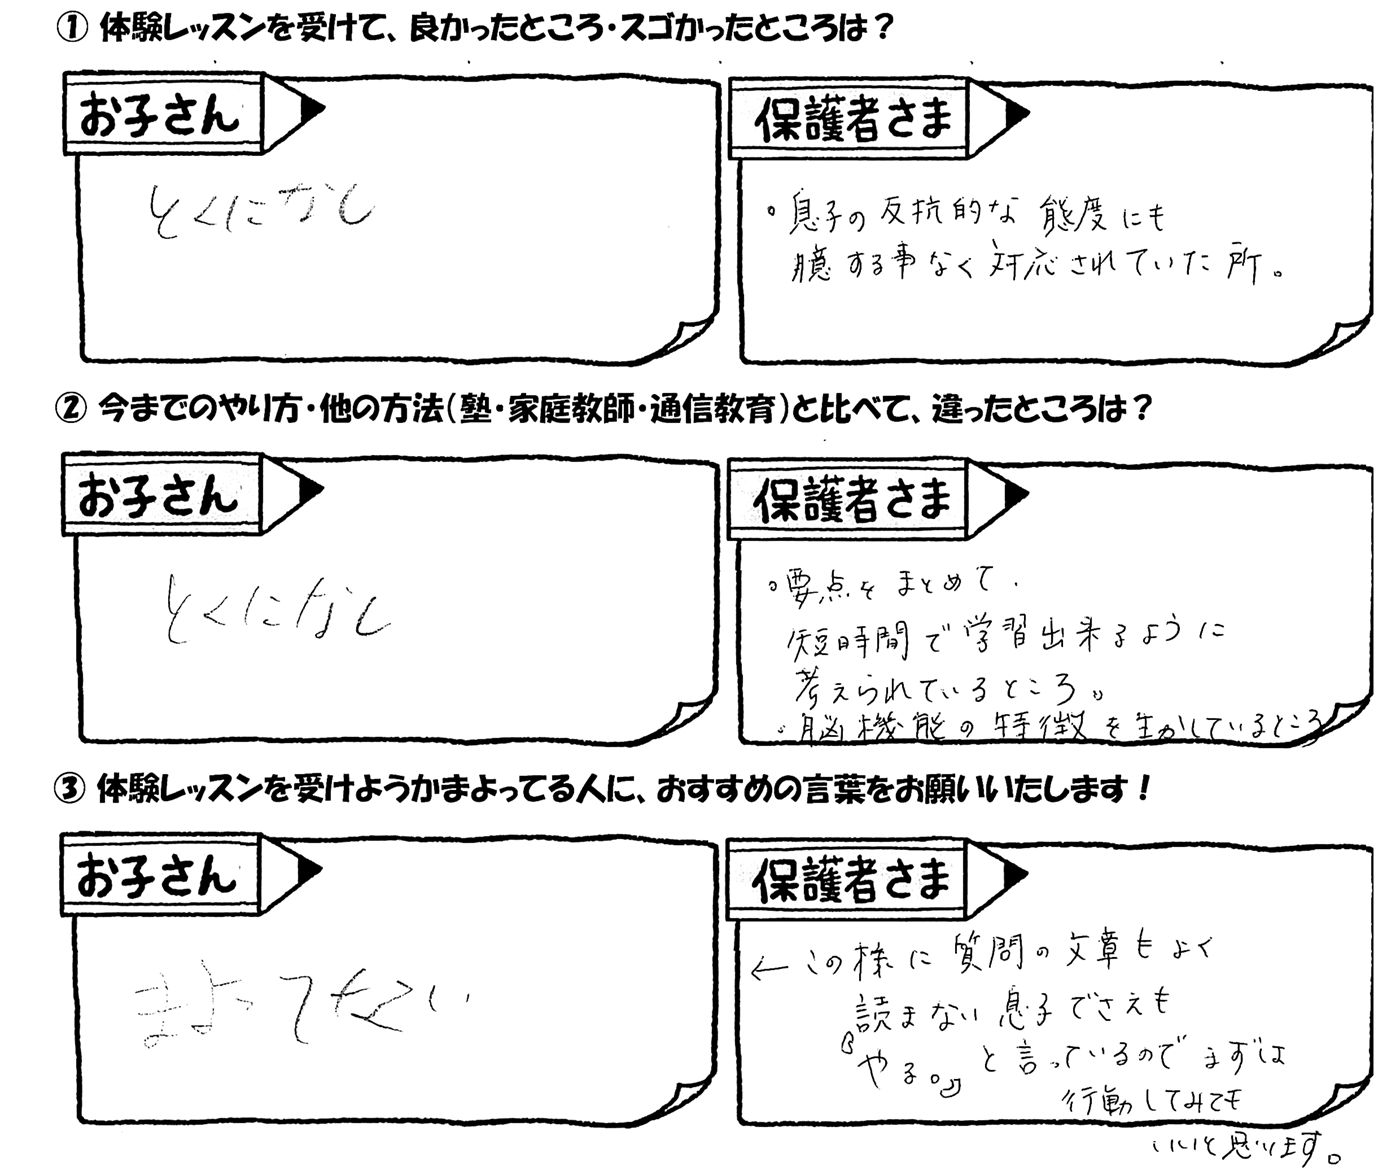 ① 体験レッスンを受けて、良かったところ・スゴかったところは？
お子さん
とくになし
保護者さま
。息子の反抗的な態度にも
臆する事なく対応されていた所。
② 今までのやり方・他の方法(塾・家庭教師・通信教育)と比べて、違ったところは？
お子さん
とくになし
保護者さま
。要点をまとめて、
短時間で学習出来るように
考えられているところ。
・脳機能の特徴を生かしているところ
③ 体験レッスンを受けようかまよってる人に、おすすめの言葉をお願いいたします！
お子さん
まよってない
保護者さま
← この様に質問の文章もよく
読まない息子でさえも
『やる。』と言っているのでまずは
行動してみても
いいと思います。